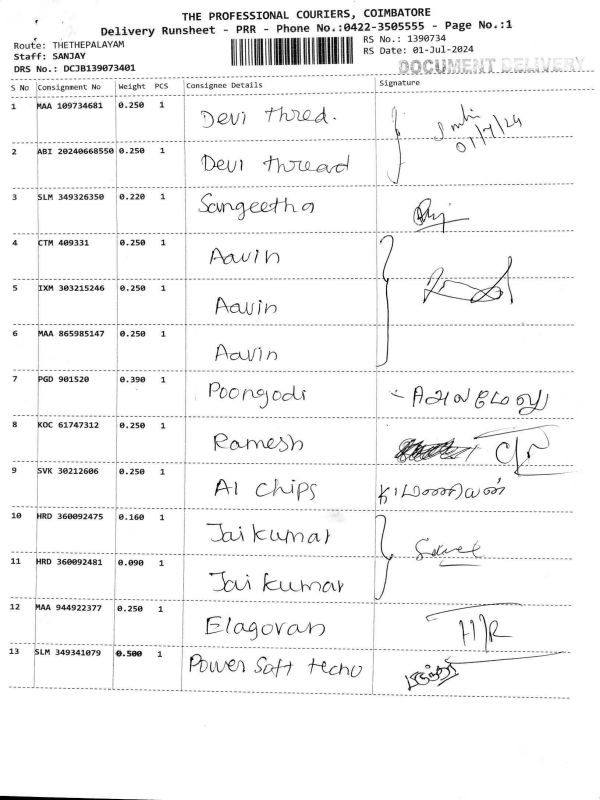 THE PROFESSIONAL COURIERS, COIMBATORE
Delivery Runsheet - PRR - Phone No.:0422-3505555 - Page No.:1
Route: THETHEPALAYAM
Staff: SANJAY
DRS No.: DCJB139073401
RS No.: 1390734
RS Date: 01-Jul-2024
DOCUMENT DELIVERY
S No Consignment No Weight PCS Consignee Details Signature
1 MAA 109734681 0.250 1 Devi thred.
01/7/24
2 ABI 20240668550 0.250 1 Devi thread
3 SLM 349326350 0.220 1 Sangeetha
4 CTM 409331 0.250 1 Aavin
5 IXM 303215246 0.250 1 Aavin
6 MAA 865985147 0.250 1 Aavin
7 PGD 901520 0.390 1 Poongodi
8 KOC 61747312 0.250 1 Ramesh
9 SVK 30212606 0.250 1 AI chips
10 HRD 360092475 0.160 1 Jaikumar
11 HRD 360092481 0.090 1 Jaikumar
12 MAA 944922377 0.250 1 Elagovan
13 SLM 349341079 0.500 1 Power Soft techo